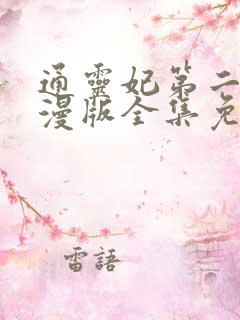 通靈妃第二
漫版全集免
雷語